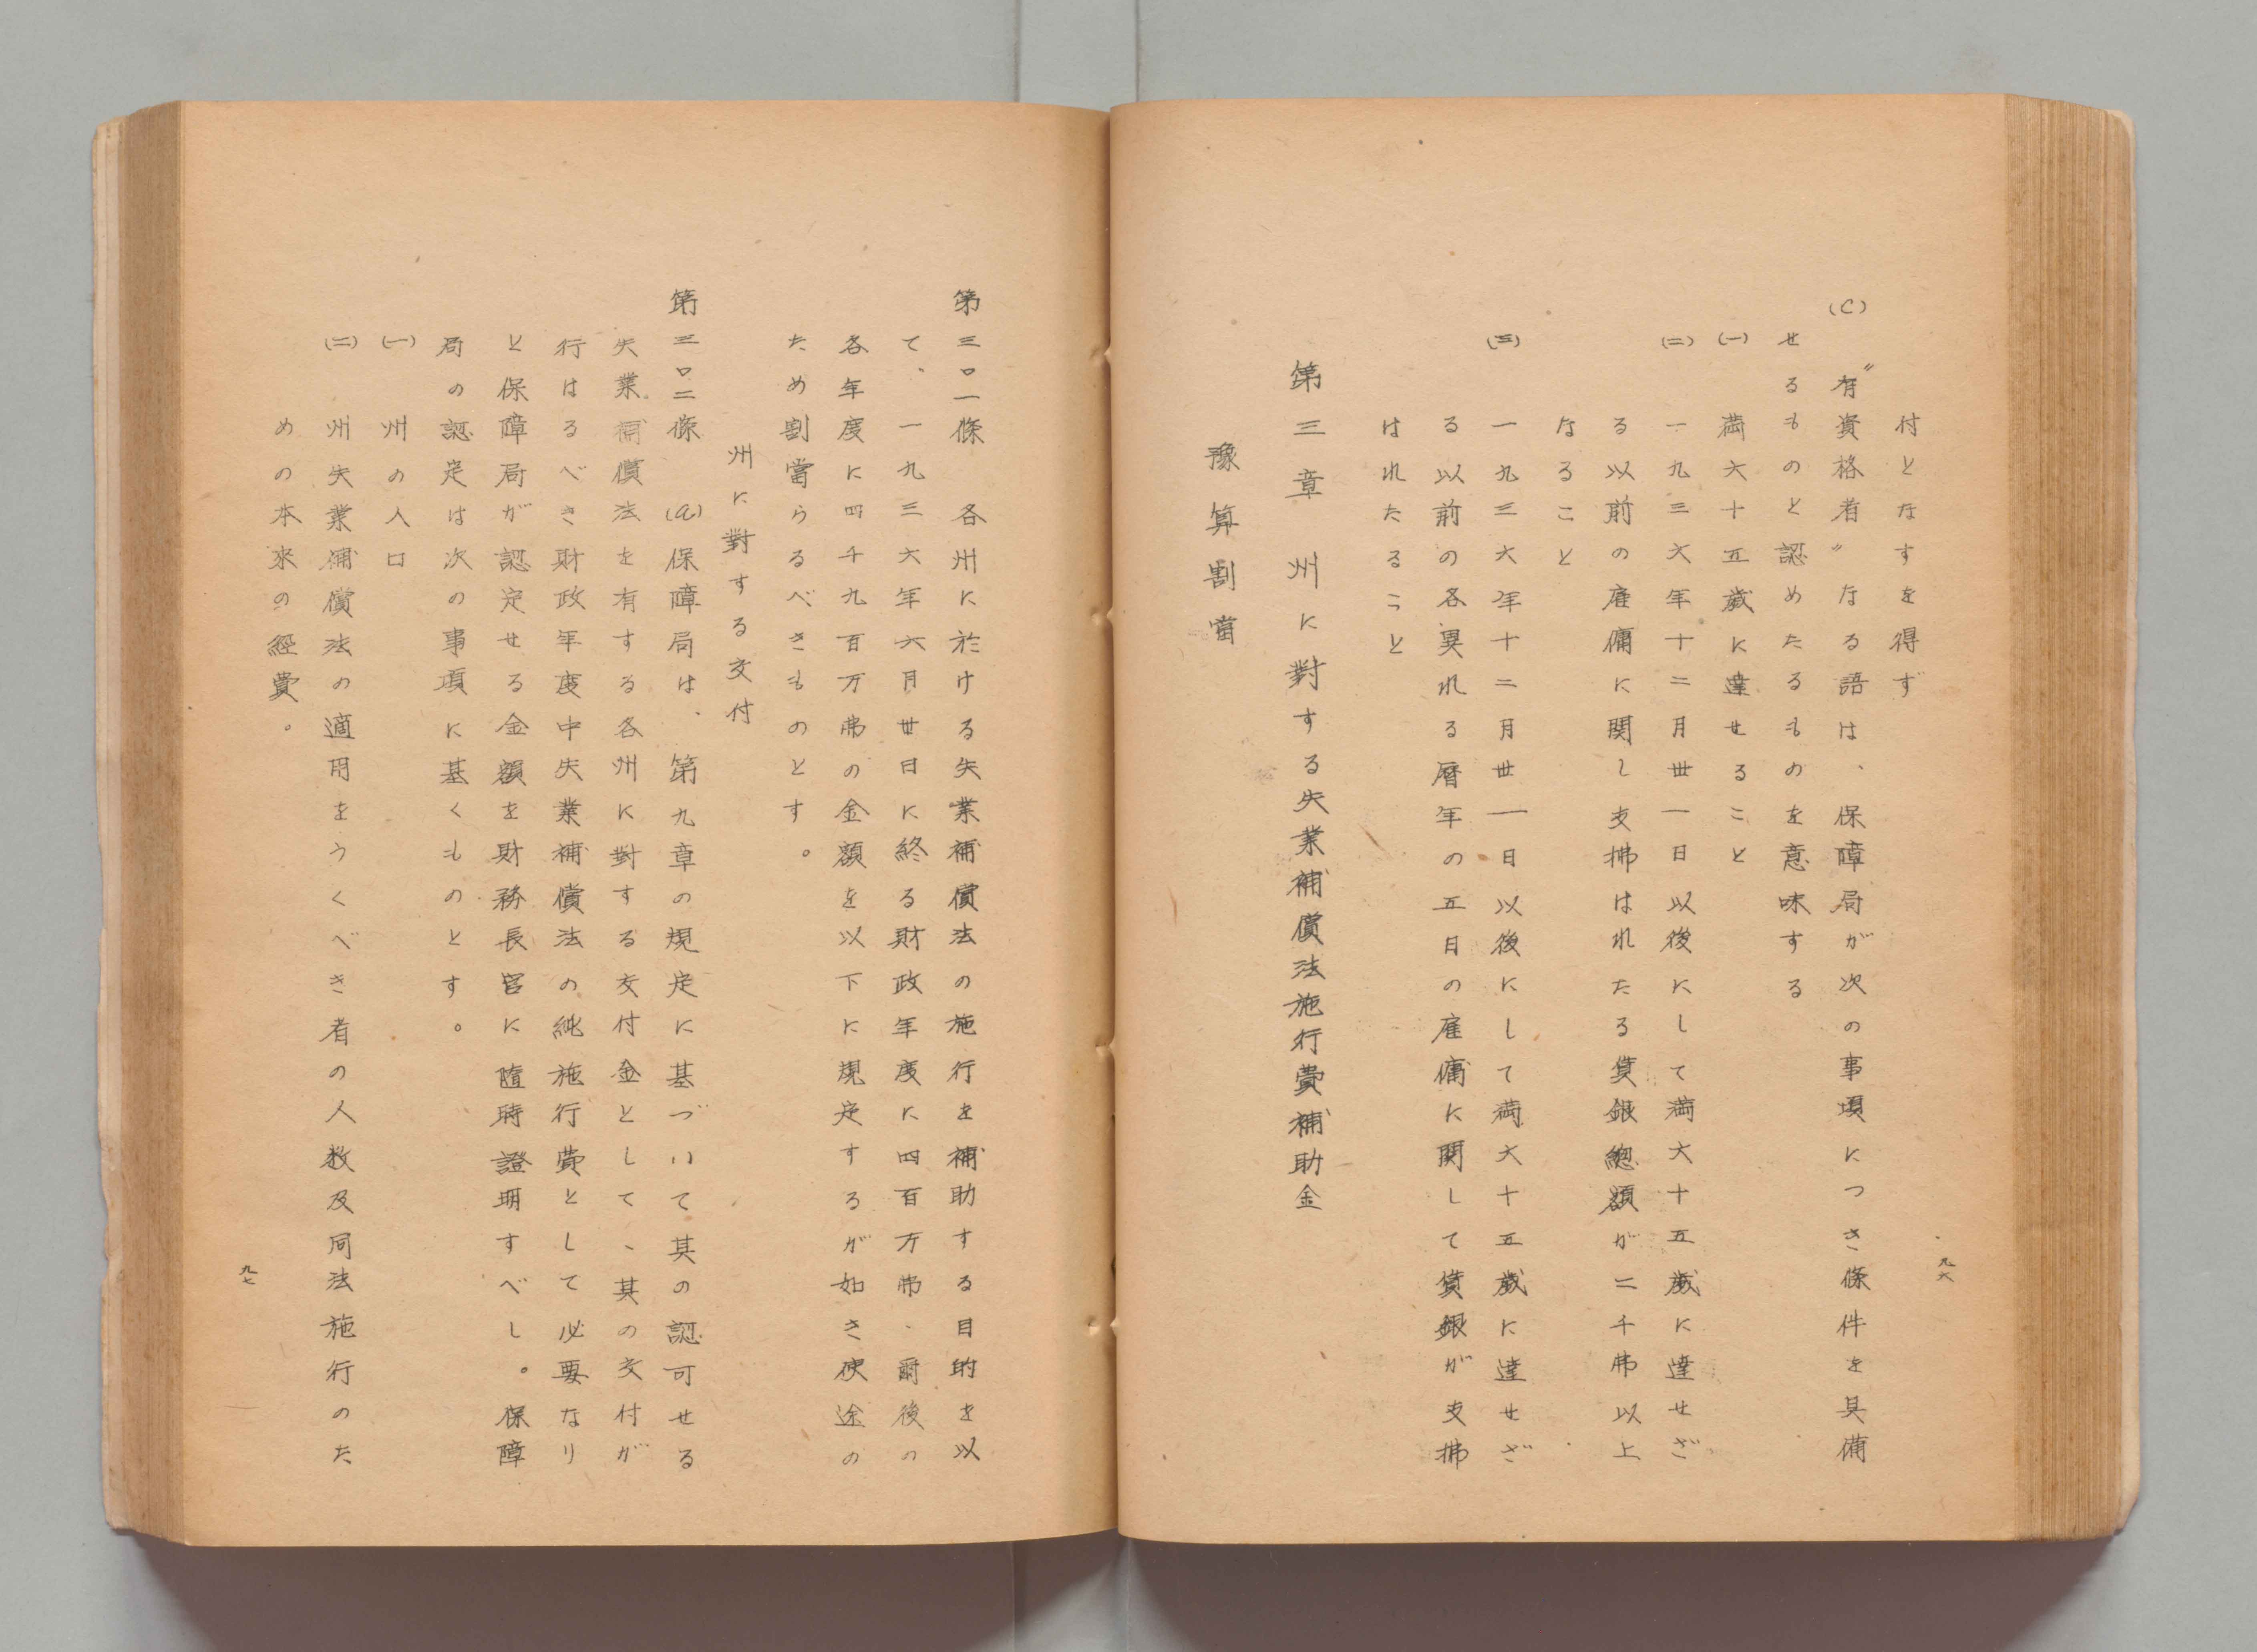 付となすを得ず
(C) 〝有資格者〟なる語は、保障局が次の事項につき條件を具備
せるものと認めたるものを意味する
(一) 満六十五歳に達せること
(二) 一九三六年十二月卅一日以後にして満六十五歳に達せざ
る以前の雇傭に関し支拂はれたる賃銀總額が二千弗以上
なること
(三) 一九三六年十二月卅一日以後にして満六十五歳に達せざ
る以前の各異れる暦年の五日の雇傭に関して賃銀が支拂
はれたること
第三章 州に對する失業補償法施行費補助金
豫算割當
九六
第三〇一條 各州に於ける失業補償法の施行を補助する目的を以
て、一九三六年六月卅日に終る財政年度に四百万弗、爾後の
各年度に四千九百万弗の金額を以下に規定するが如き使途の
ため割當らるべきものとす。
州に對する交付
第三〇二條 (a)保障局は、第九章の規定に基づいて其の認可せる
失業補償法を有する各州に對する交付金として、其の交付が
行はるべき財政年度中失業補償法の純施行費として必要なり
と保障局が認定せる金額を財務長官に隨時證明すべし。保障
局の認定は次の事項に基くものとす。
(一) 州の人口
(二) 州失業補償法の適用をうくべき者の人数及同法施行のた
めの本來の経費。
九七